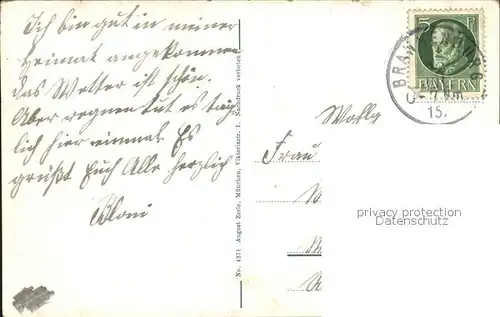 Ich bin gut in meiner
Heimat angekommen
das Wetter ist schön.
Aber regnen tut es täg
lich hier einmal. Es
grüßt Euch Alle herzlich
No. 4311 August Zerle, München, Viktoriastr. 1. Nachdruck verboten
5 P F
BAYERN
BRAN
15.
Frau
privacy protection
Datenschutz